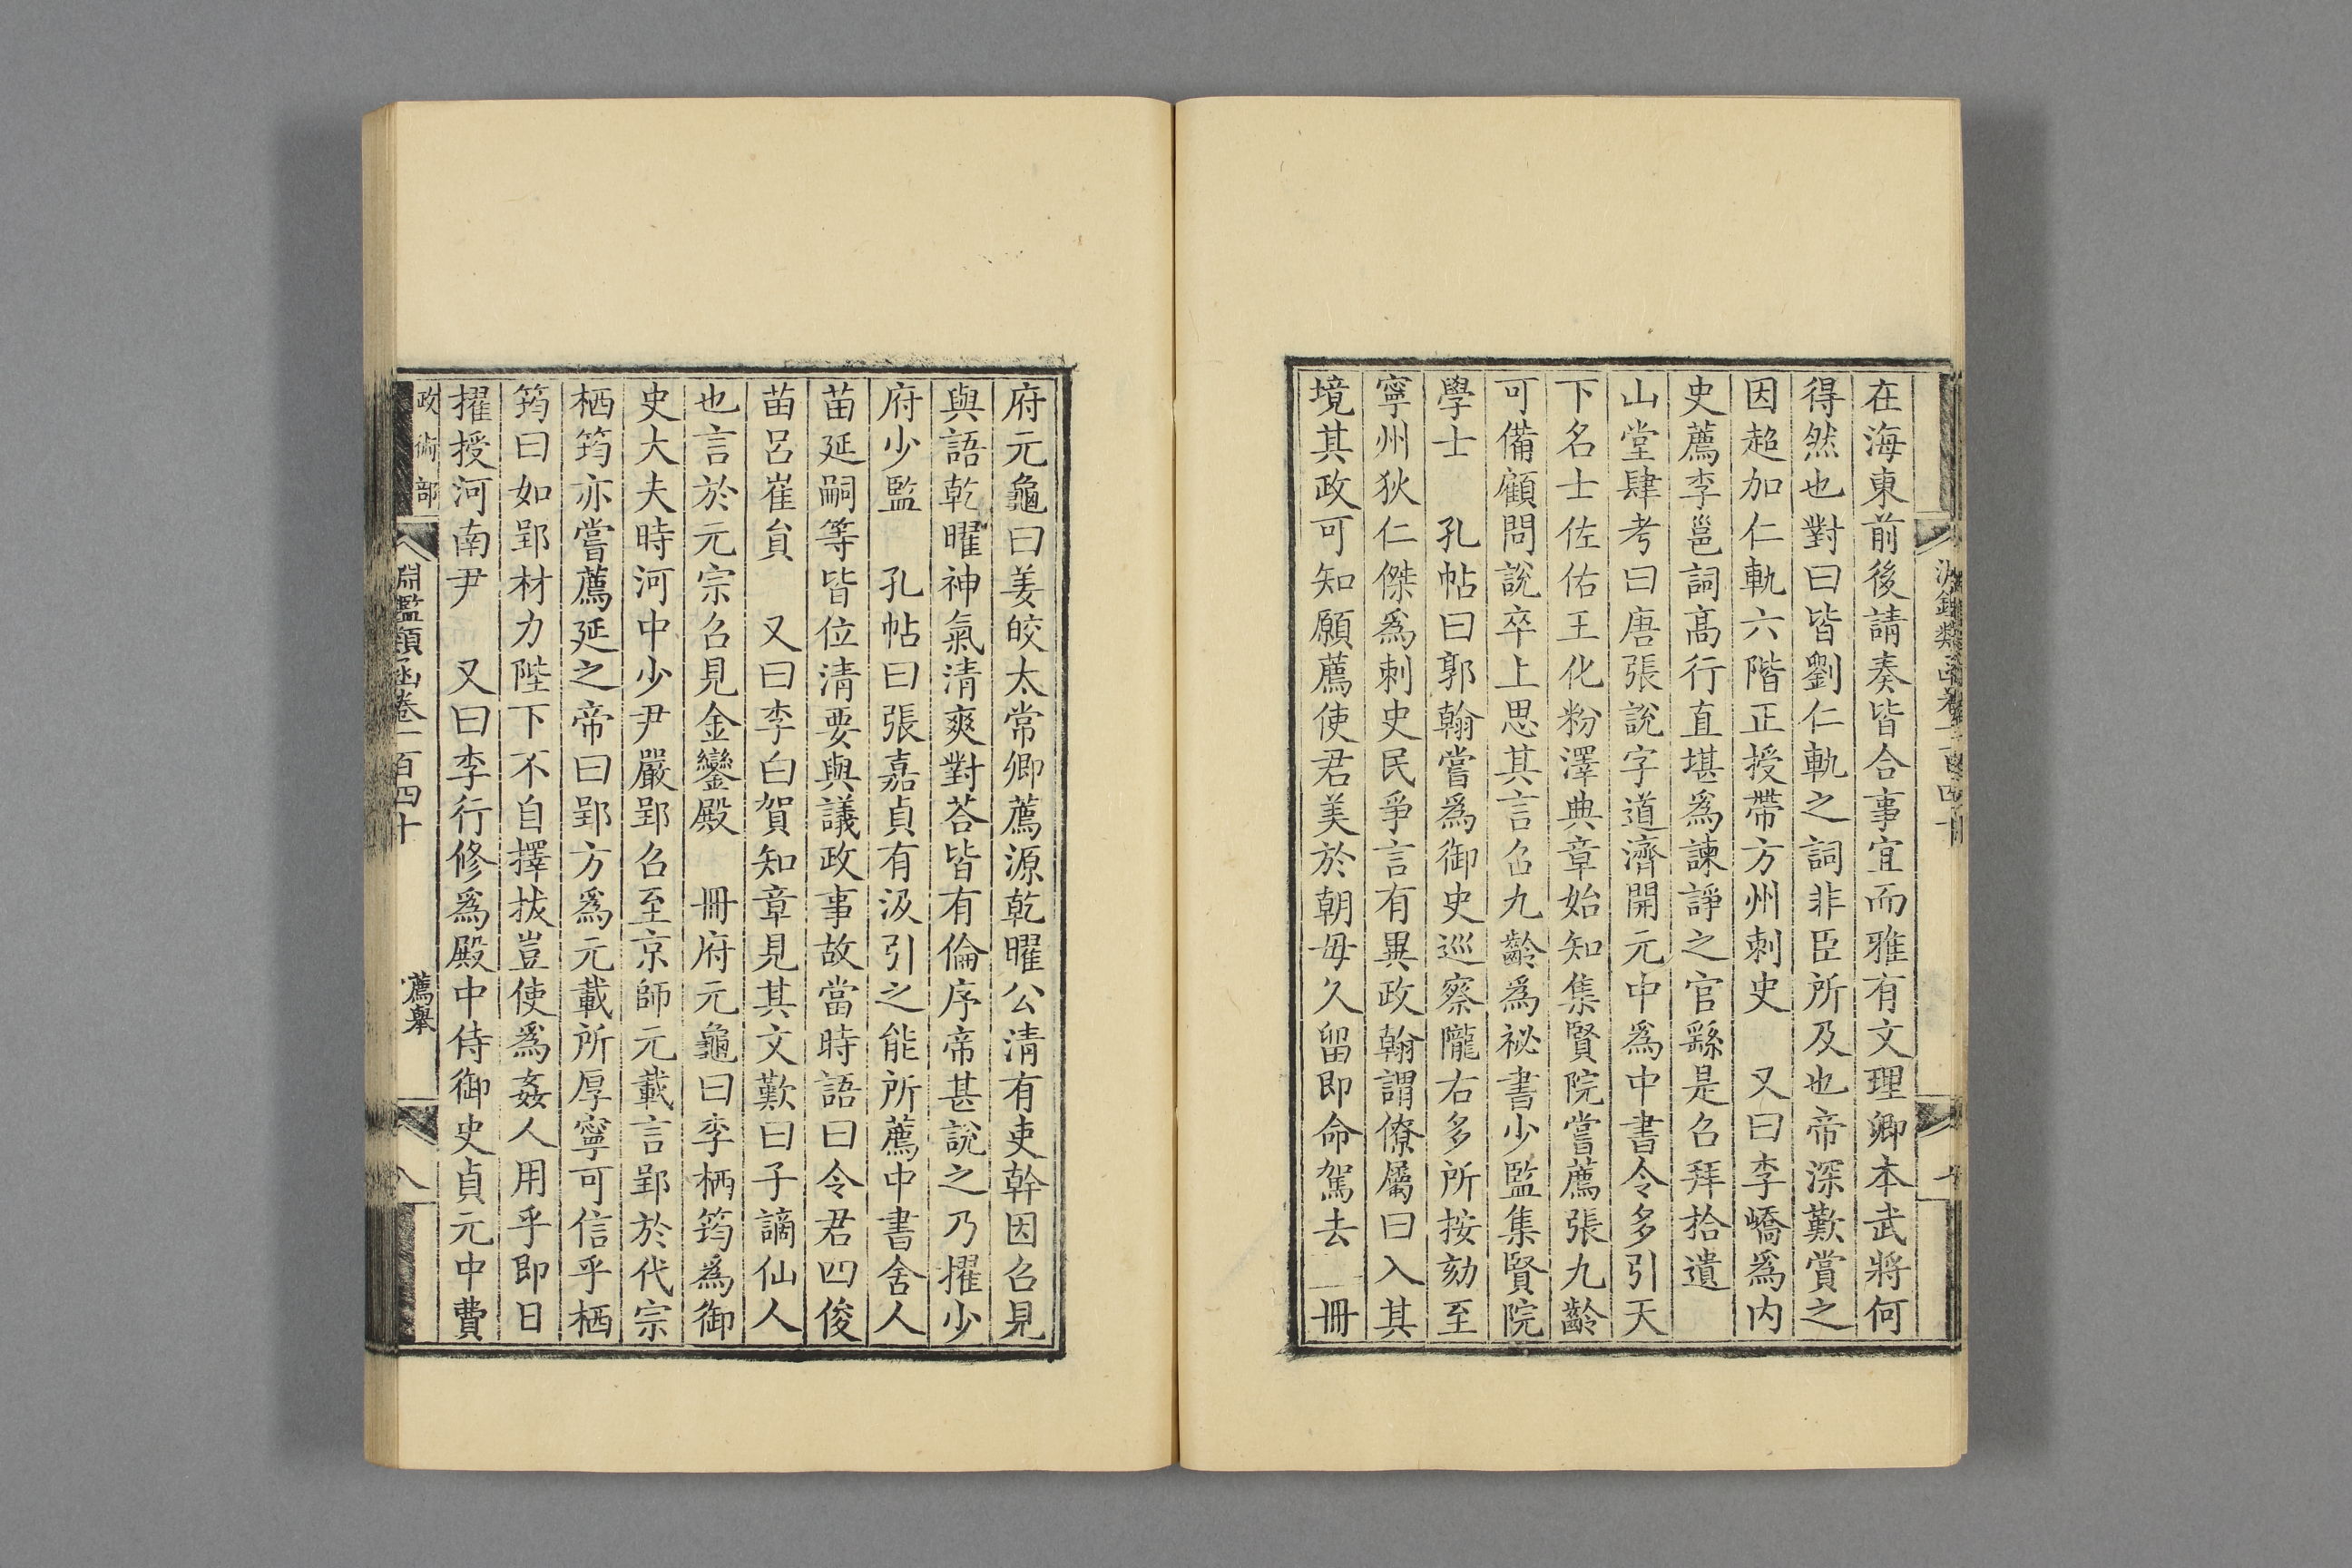 在海東前後請奏皆合事宜而雅有文理卿本武將何
得然也對曰皆劉仁軌之詞非臣所及也帝深歎賞之
因超加仁軌六階正授帶方州刺史　又曰李嶠爲內
史薦李邕詞高行直堪爲諫諍之官繇是召拜拾遺
山堂肆考曰唐張說字道濟開元中爲中書令多引天
下名士佐佑王化粉澤典章始知集賢院嘗薦張九齡
可備顧問說卒上思其言召九齡爲祕書少監集賢院
學士　孔帖曰郭翰嘗爲御史巡察隴右多所按劾至
寧州狄仁傑爲刺史民爭言有異政翰謂僚屬曰入其
境其政可知願薦使君美於朝毋久留即命駕去　冊
府元龜曰姜皎太常卿薦源乾曜公清有吏幹因召見
與語乾曜神氣清爽對荅皆有倫序帝甚說之乃擢少
府少監　孔帖曰張嘉貞有汲引之能所薦中書舍人
苗延嗣等皆位清要與議政事故當時語曰令君四俊
苗呂崔員　又曰李白賀知章見其文歎曰子謫仙人
也言於元宗召見金鑾殿　冊府元龜曰李栖筠爲御
史大夫時河中少尹嚴郢召至京師元載言郢於代宗
栖筠亦嘗薦延之帝曰郢方爲元載所厚寧可信乎栖
筠曰如郢材力陛下不自擇拔豈使爲姦人用乎即日
擢授河南尹　又曰李行修爲殿中侍御史貞元中費
政術部
淵鑑類函卷二百四十
薦舉
八